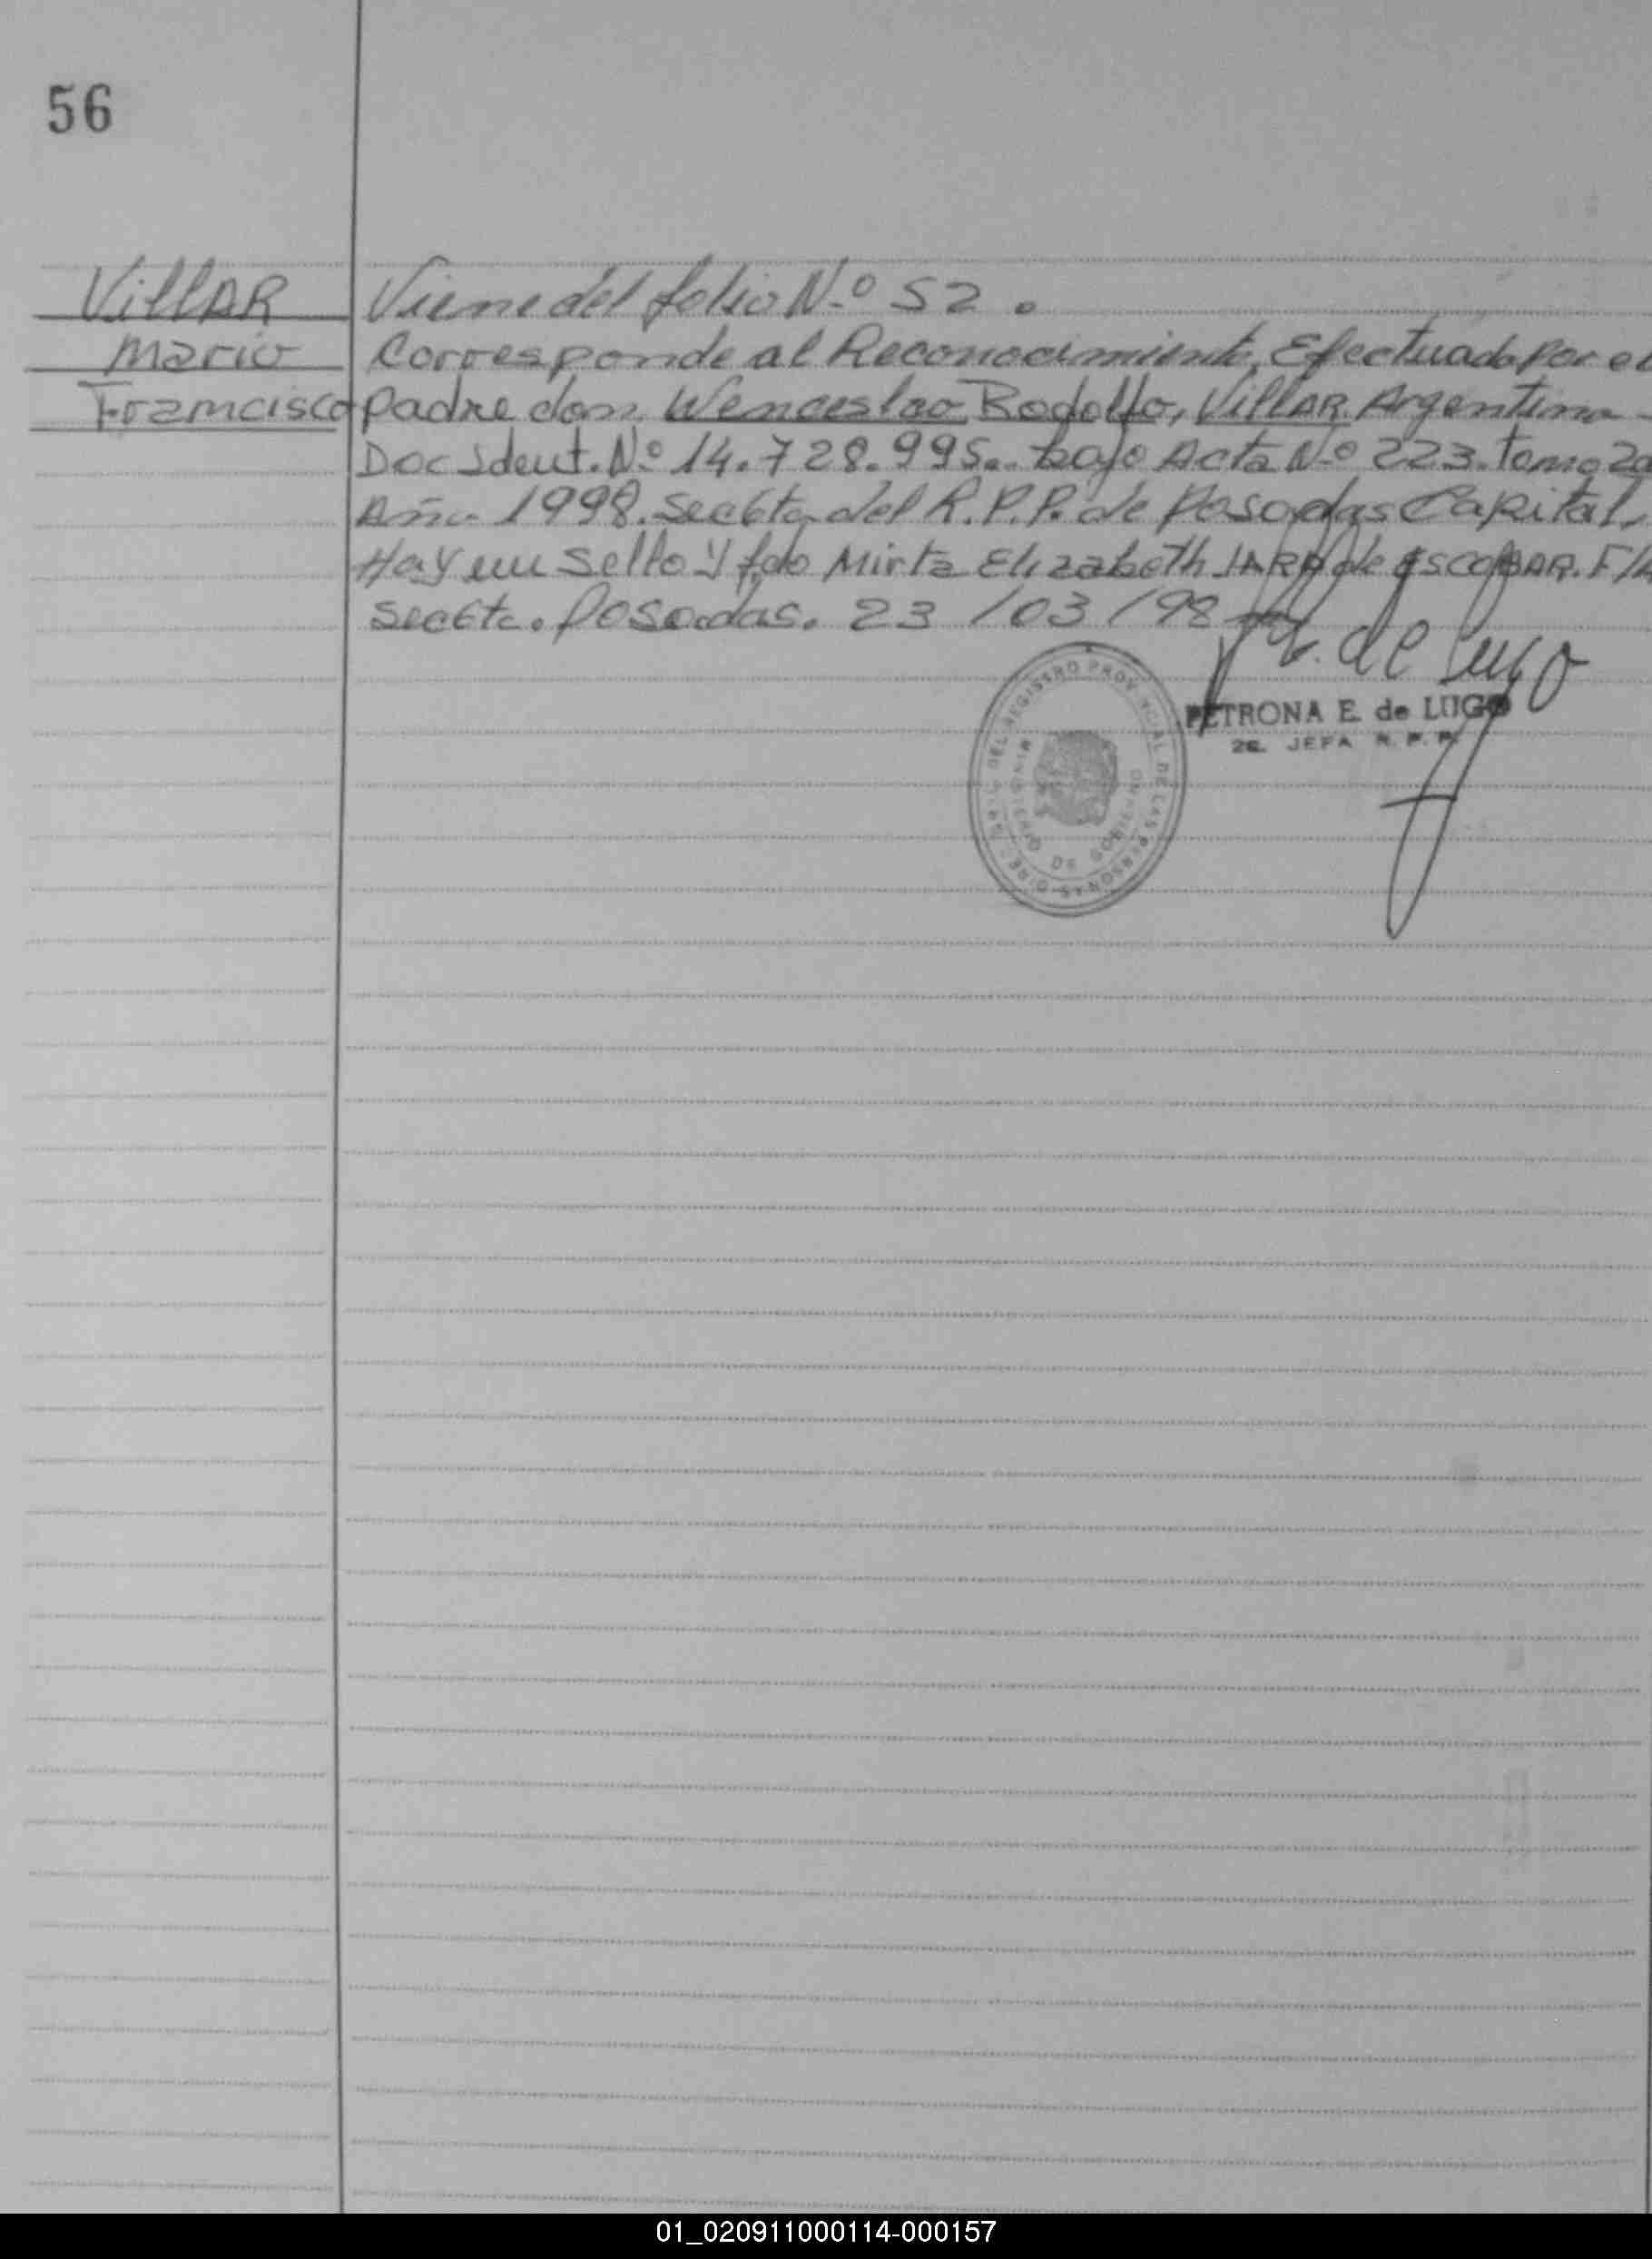 56
VillAR
Mario
Francisco
Viene del folio N.º 52.
Corresponde al Reconocimiento, Efectuado Por el
Padre don, Wenceslao Rodolfo, VillAR. Argentino
Doc Ident. Nº 14.728.995.. bajo Acta N.º 223. Tomo 2º
Año 1998. Sec 6ta del R.P.P. de Posadas Capital,
Hay un Sello y fdo Mirta Elizabeth JARA de ESCOBAR. F/A
Sec 6ta. Posadas. 23/03/98
de Lugo
PETRONA E. de LUGO
JEFA R. P. P.
DEL REGISTRO PROVINCIAL DE LAS PERSONAS
DE GOBIERNO
01_020911000114-000157